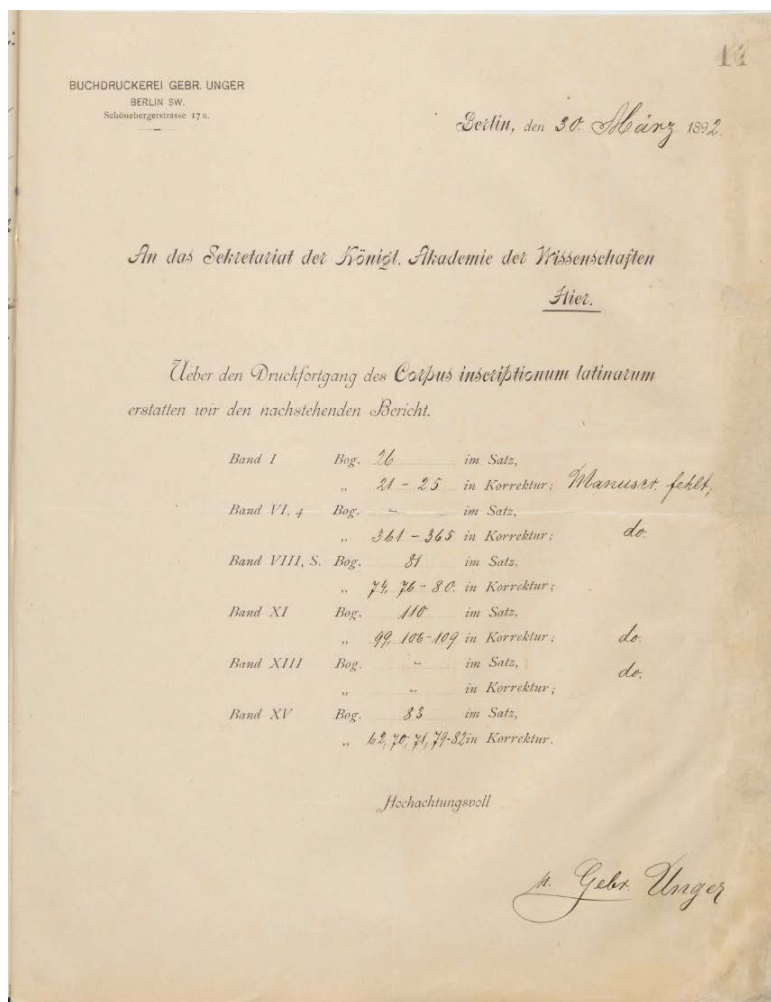 14
BUCHDRUCKEREI GEBR. UNGER
BERLIN SW.
Schönebergerstrasse 17a.
Berlin, den 30. März 1892.
An das Sekretariat der Königl. Akademie der Wissenschaften
Hier.
Ueber den Druckfortgang des Corpus inscriptionum latinarum
erstatten wir den nachstehenden Bericht.
Band I Bog. 26 im Satz,
„ 21 - 25 in Korrektur; Manuscr. fehlt;
Band VI, 4 Bog. - im Satz,
„ 361 - 365 in Korrektur; do.
Band VIII, S. Bog. 81 im Satz,
„ 74, 76 - 80. in Korrektur;
Band XI Bog. 110 im Satz,
„ 99, 106-109 in Korrektur; do.
Band XIII Bog. - im Satz, do.
„ - in Korrektur;
Band XV Bog. 83 im Satz,
„ 62, 70, 71, 79-82 in Korrektur.
Hochachtungsvoll
Gebr. Unger